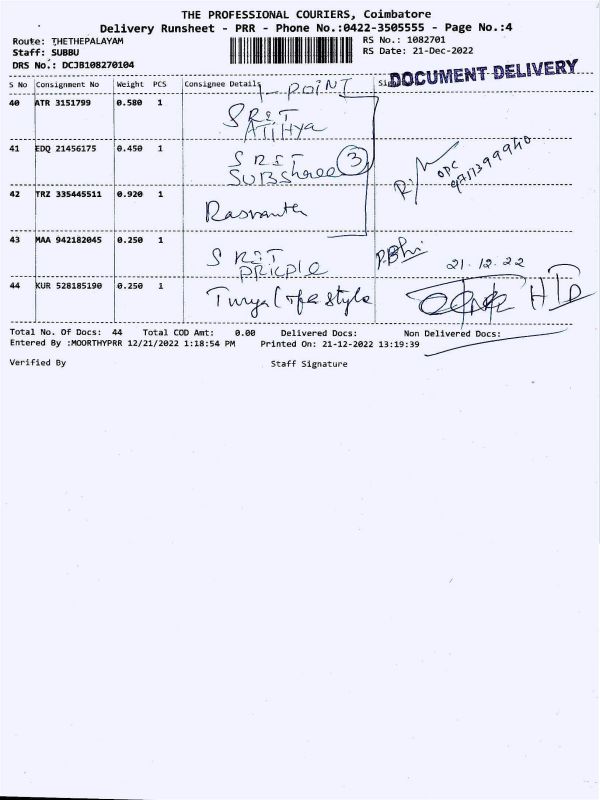 THE PROFESSIONAL COURIERS, Coimbatore
Delivery Runsheet - PRR - Phone No.:0422-3505555 - Page No.:4
Route: THETHEPALAYAM RS No.: 1082701
Staff: SUBBU RS Date: 21-Dec-2022
DRS No.: DCJB108270104
DOCUMENT DELIVERY
S No Consignment No Weight PCS Consignee Details
1-POINT
40 ATR 3151799 0.580 1 SRIT
41 EDQ 21456175 0.450 1 SRIT
SUBShree 3
42 TRZ 335445511 0.920 1
43 MAA 942182045 0.250 1 SRIT
21.12.22
44 KUR 528185190 0.250 1
Total No. Of Docs: 44 Total COD Amt: 0.00 Delivered Docs: Non Delivered Docs:
Entered By :MOORTHYPRR 12/21/2022 1:18:54 PM Printed On: 21-12-2022 13:19:39
Verified By Staff Signature